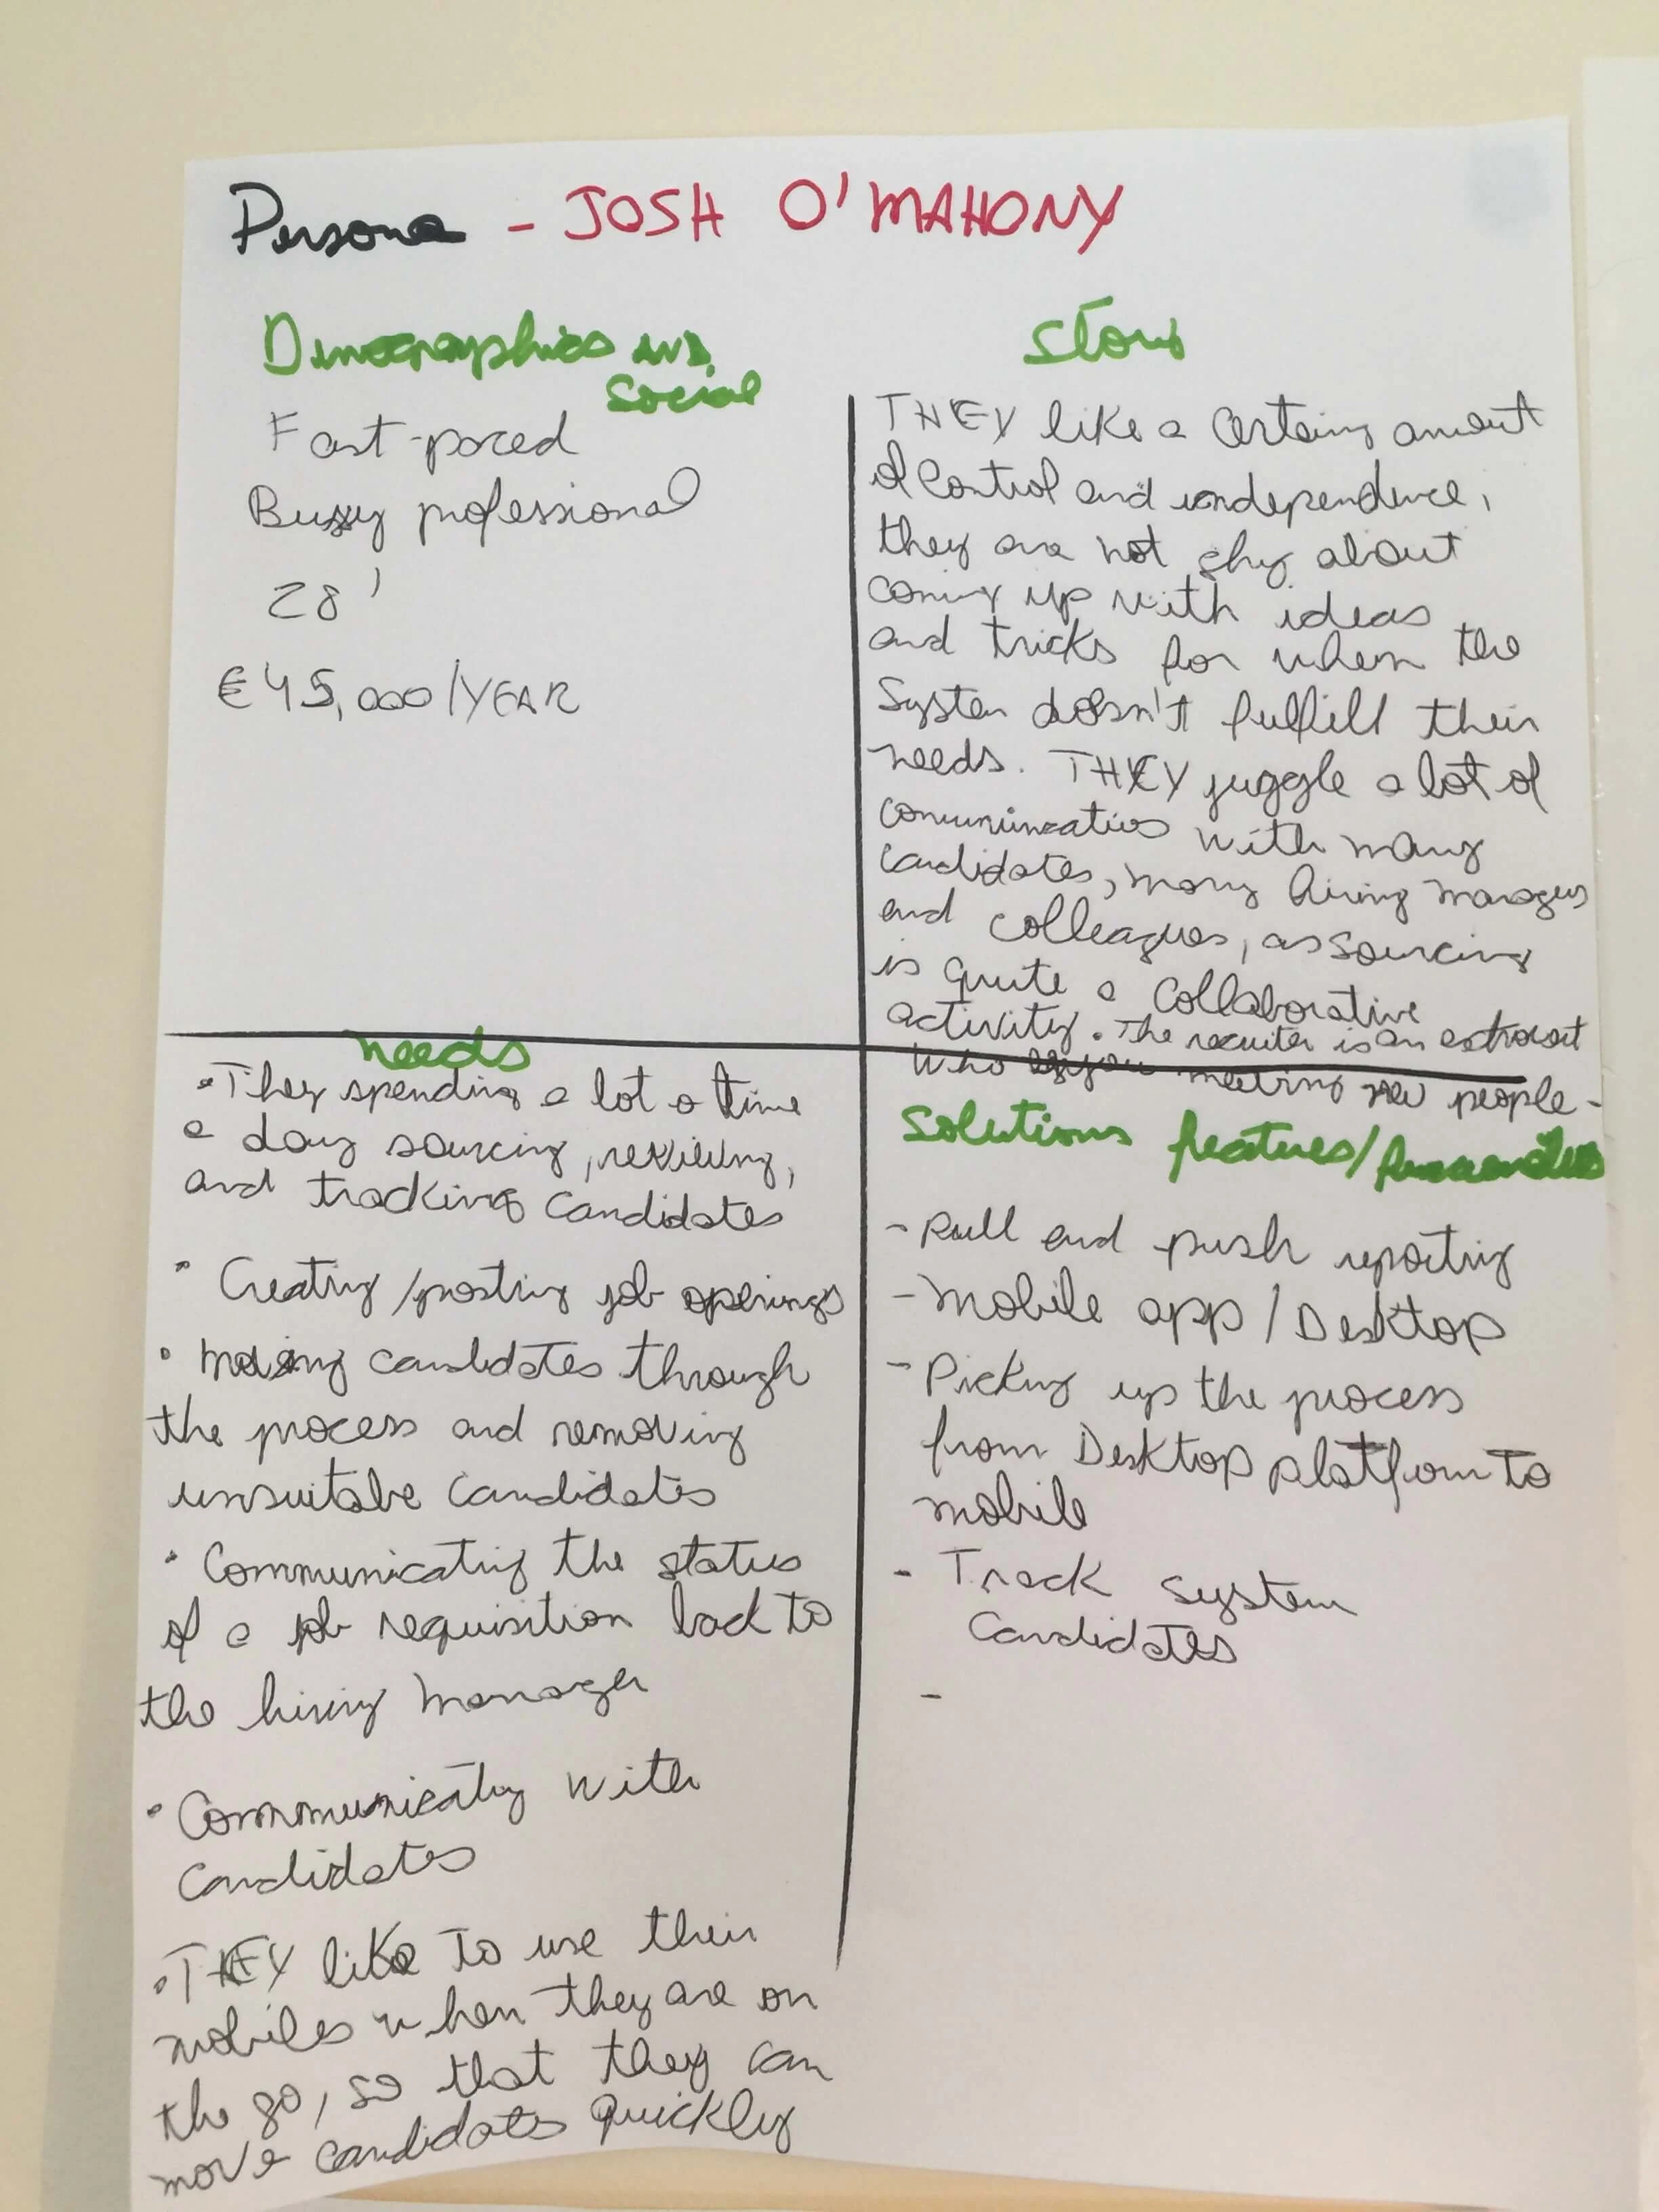 Persona - JOSH O'MAHONY
Demographics AND
Social
Fast-paced
Bussy professional
28'
€45,000/YEAR
Story
THEY like a certaing amount
of control and independence,
they are not shy about
coming up with ideas
and tricks for when the
System doesn't fulfill their
needs. THEY juggle a lot of
communication with many
candidates, many hiring managers
and colleagues, as sourcing
is quite a collaborative
activity. The recruiter is an extrovert
who enjoys meeting new people-
needs
• They spending a lot o time
a day sourcing, reviewing,
and tracking candidates
• Creating/posting job openings
• Moving candidates through
the process and removing
unsuitabe candidates
• Communicating the status
of a job requisition back to
the hiring manager
• Communicating with
candidates
• THEY like To use their
mobiles when they are on
the go, so that they can
move candidates quickly
Solutions features/
- Pull and push reporting
- Mobile app/Desktop
- Picking up the process
from Desktop platform to
mobile
- Track system
Candidates
-